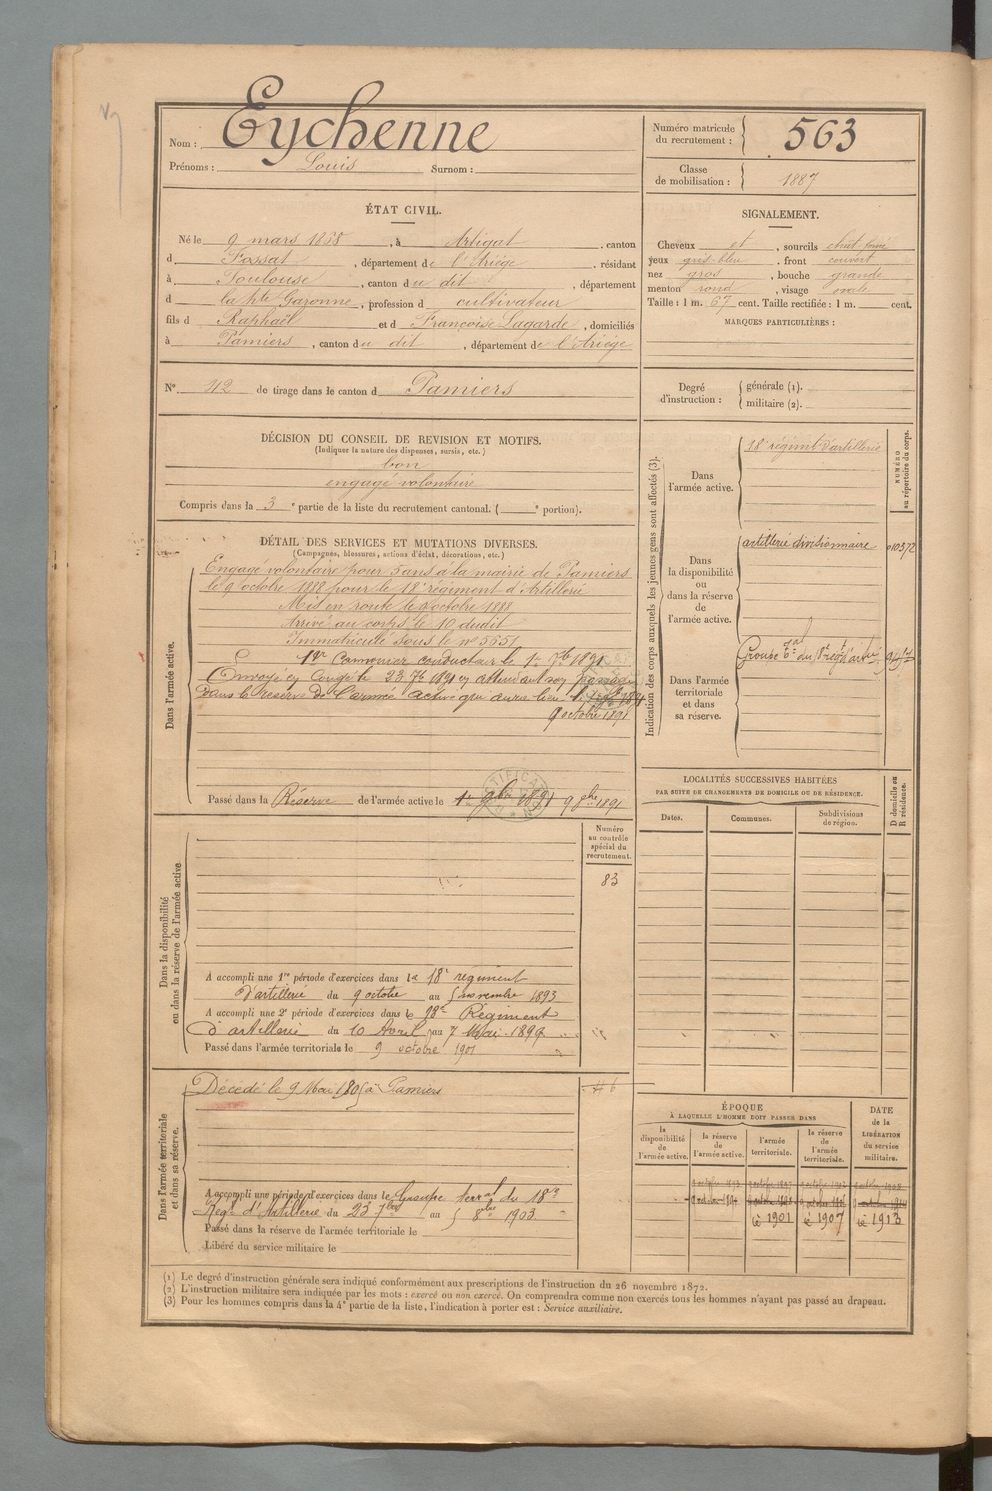 Nom : Eychenne
Prénoms : Louis Surnom :
Numéro matricule du recrutement : 563
Classe de mobilisation : 1887
ÉTAT CIVIL.
Né le 9 mars 1868, à Artigat, canton
d Fossat, département de l'Ariège, résidant
à Toulouse, canton du dit, département
d la hte Garonne, profession d cultivateur
fils d Raphaël et d Françoise Lagarde, domiciliés
à Pamiers, canton du dit, département de l'Ariège
N° 42 de tirage dans le canton d Pamiers
SIGNALEMENT.
Cheveux et, sourcils chat. foncé
yeux gris bleu, front couvert
nez gros, bouche grande
menton rond, visage ovale
Taille : 1 m. 67 cent. Taille rectifiée : 1 m. cent.
MARQUES PARTICULIÈRES :
Degré d'instruction : générale (1).
militaire (2).
DÉCISION DU CONSEIL DE REVISION ET MOTIFS.
(Indiquer la nature des dispenses, sursis, etc.)
bon
engagé volontaire
Compris dans la 3e partie de la liste du recrutement cantonal. ( e portion).
DÉTAIL DES SERVICES ET MUTATIONS DIVERSES.
(Campagnes, blessures, actions d'éclat, décorations, etc.)
Dans l'armée active.
Engagé volontaire pour 5 ans à la mairie de Pamiers
le 9 octobre 1888 pour le 18e régiment d'Artillerie
Mis en route le 9 octobre 1888
Arrivé au corps le 10 dudit
Immatriculé sous le no 5651
1er Canonnier conducteur le 1er 7bre 1891
Envoyé en congé le 23 7bre 1891 en attendant son passage
dans la réserve de l'armée active qui aura lieu le 1er 9bre 1891
9 octobre 1891
Passé dans la Réserve de l'armée active le 1er 9bre 1891 9 8bre 1891
Indication des corps auxquels les jeunes gens sont affectés (3).
NUMÉRO au répertoire du corps.
Dans l'armée active.
18e régiment d'artillerie
Dans la disponibilité ou dans la réserve de l'armée active.
artillerie divisionnaire
Dans l'armée territoriale et dans sa réserve.
Groupe du 18e régt d'artie
LOCALITÉS SUCCESSIVES HABITÉES
PAR SUITE DE CHANGEMENTS DE DOMICILE OU DE RÉSIDENCE.
Dates. Communes. Subdivisions de région.
D domicile ou R résidence.
Numéro au contrôle spécial du recrutement.
83
Dans la disponibilité ou dans la réserve de l'armée active
A accompli une 1re période d'exercices dans le 18e régiment
d'artillerie du 9 octobre au 5 novembre 1893
A accompli une 2e période d'exercices dans le 18e Régiment
d'artillerie du 10 Avril au 7 Mai
Passé dans l'armée territoriale le 9 octobre 1901
Dans l'armée territoriale et dans sa réserve.
Décédé le 9 Mai 1805 à Pamiers
A accompli une période d'exercices dans le Groupe terral du 18me
Régt d'Artillerie du 23 7bre au 5 8bre 1903
Passé dans la réserve de l'armée territoriale le
Libéré du service militaire le
ÉPOQUE
À LAQUELLE L'HOMME DOIT PASSER DANS
la disponibilité de l'armée active.
la réserve de l'armée active.
l'armée territoriale.
la réserve de l'armée territoriale.
DATE de la LIBÉRATION du service militaire.
1901 1907 1913
(1) Le degré d'instruction générale sera indiqué conformément aux prescriptions de l'instruction du 26 novembre 1872.
(2) L'instruction militaire sera indiquée par les mots : exercé ou non exercé. On comprendra comme non exercés tous les hommes n'ayant pas passé au drapeau.
(3) Pour les hommes compris dans la 4e partie de la liste, l'indication à porter est : Service auxiliaire.